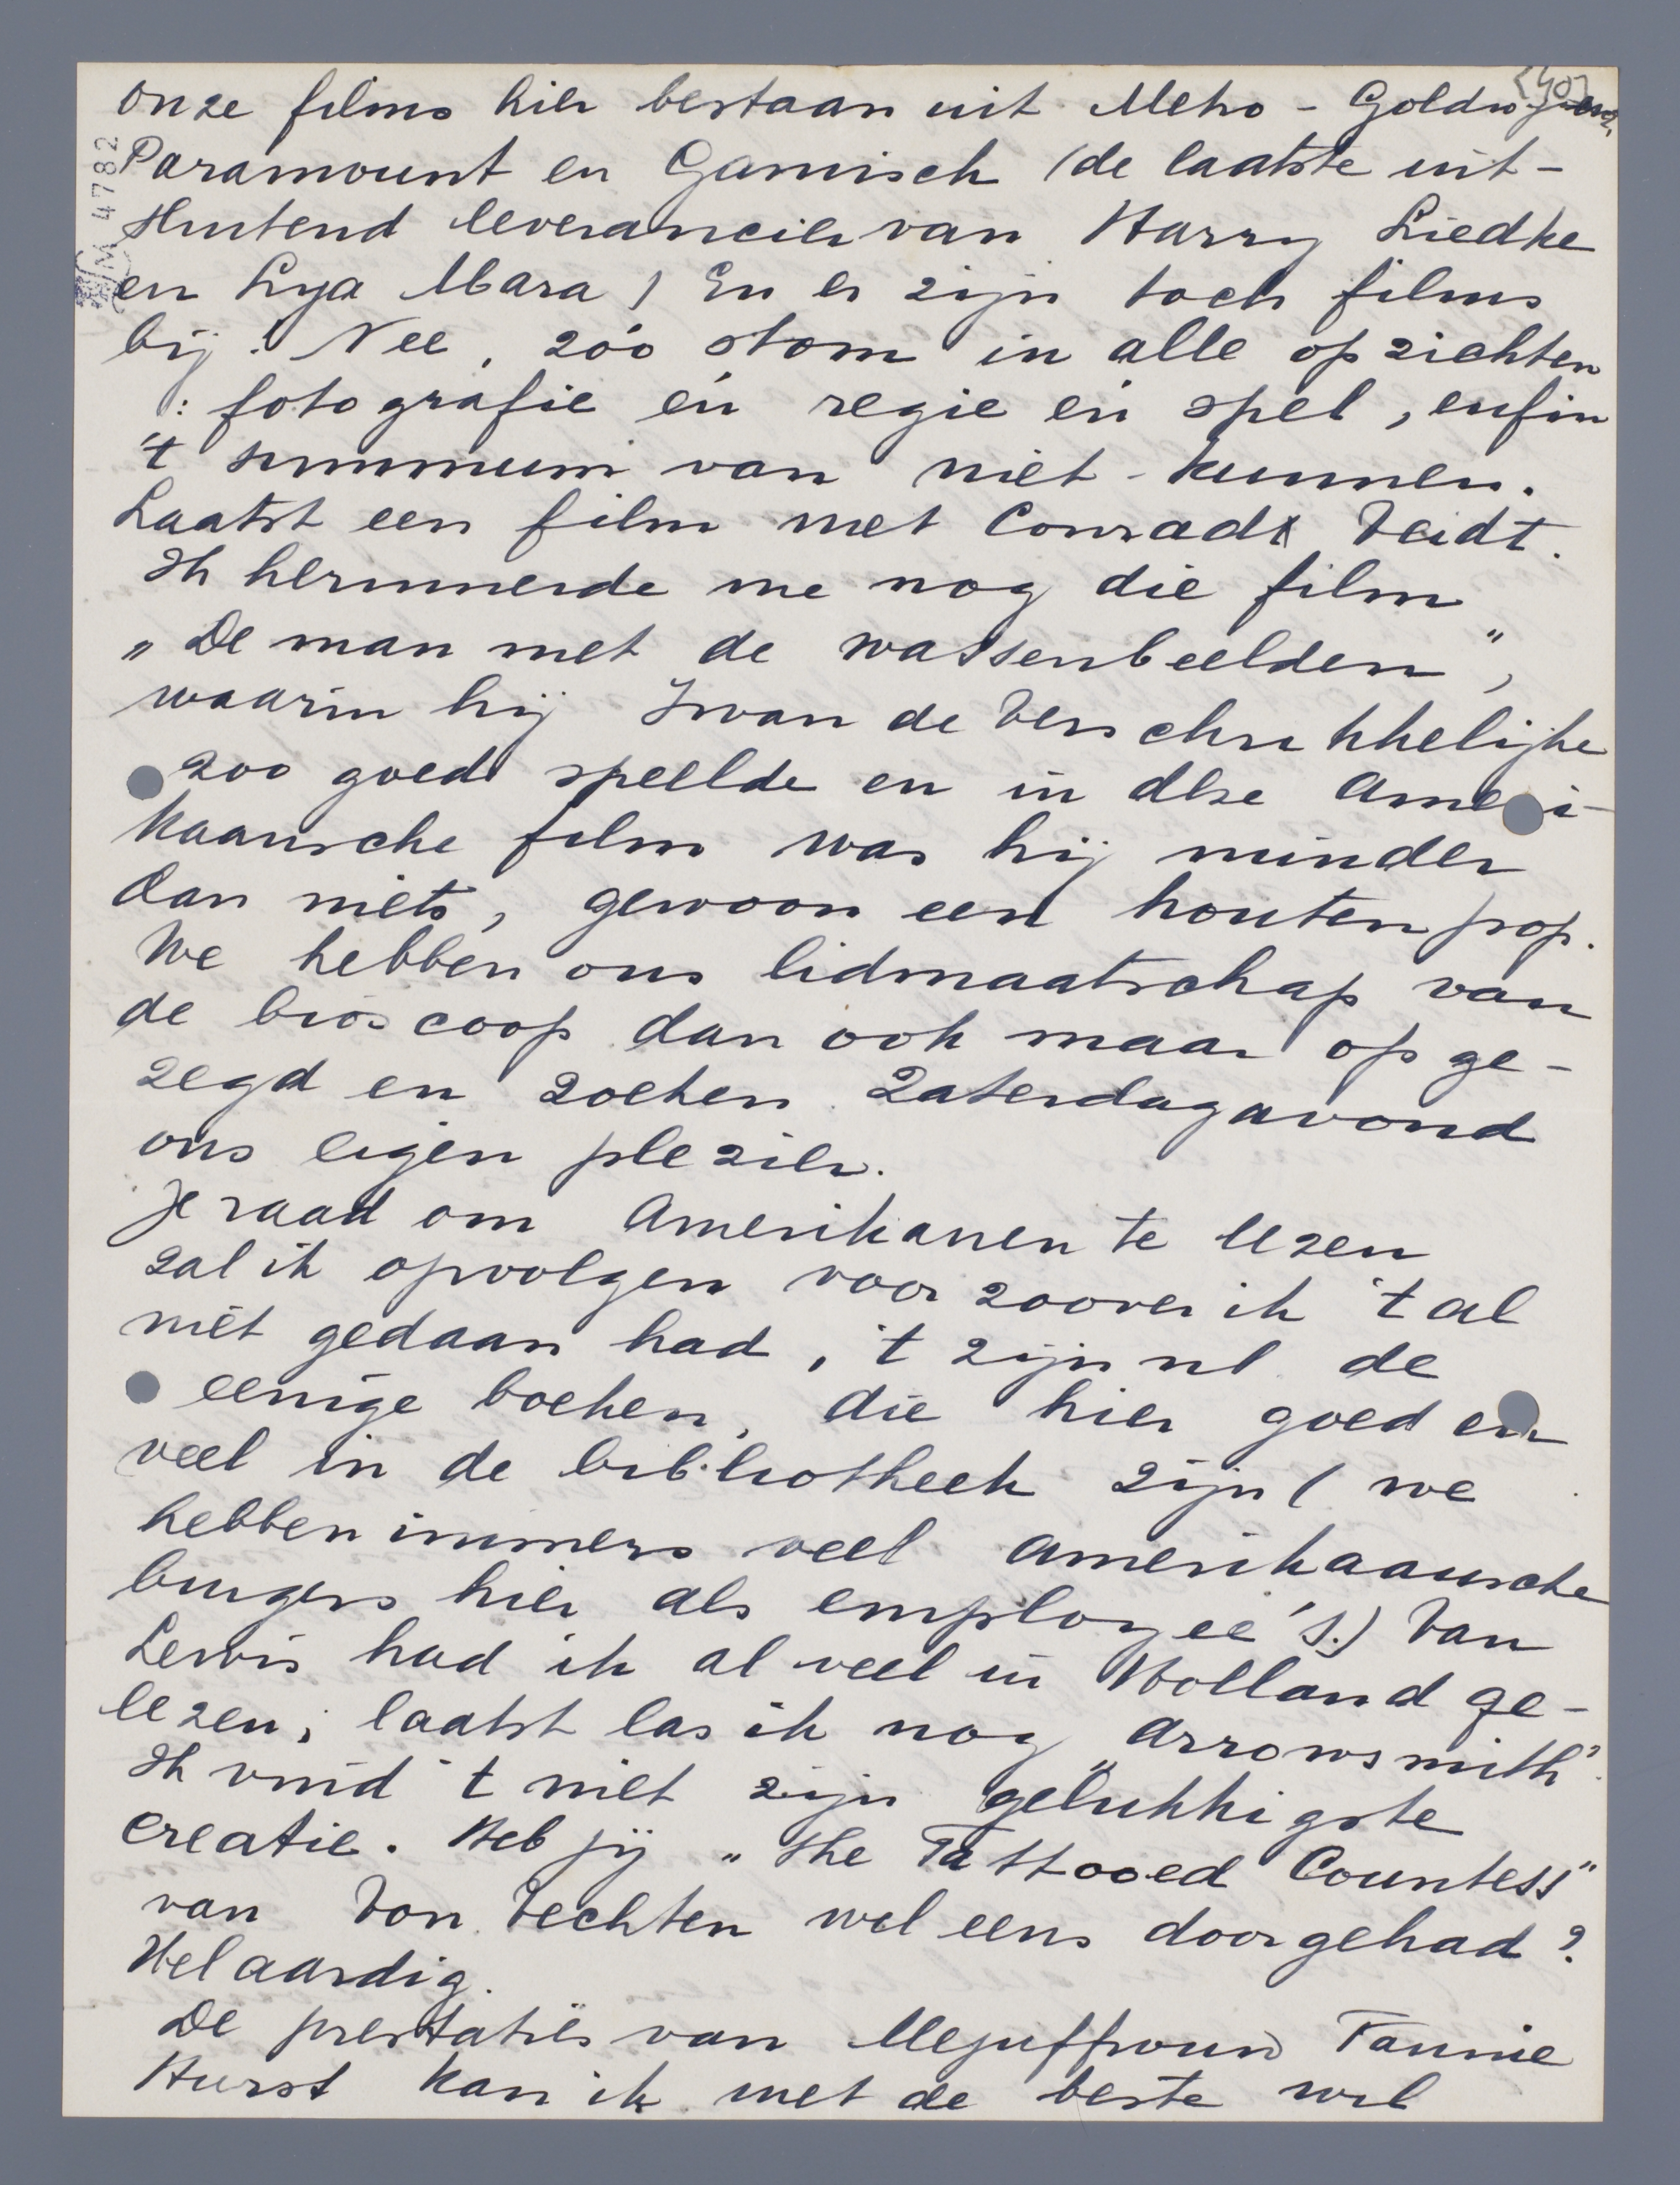 <40>
4782
onze films hier bestaan uit Metro - Goldwyners,
Paramount en Gamisch (de laatste uit-
sluitend leverancier van Harry Liedke
en Lya Mara) En er zijn toch films
bij! Nee, zóó stom in alle opzichten
: fotografie én regie én spel, enfin
't summum van niet-kunnen.
Laatst een film met Conradt Veidt.
Ik herinnerde me nog die film
„De man met de wassenbeelden",
waarin hij Iwan de Verschrikkelijke
zoo goed speelde en in deze Ameri-
kaansche film was hij minder
dan niets, gewoon een houten pop.
We hebben ons lidmaatschap van
de bioscoop dan ook maar opge-
zegd en zoeken Zaterdagavond
ons eigen plezier.
Je raad om Amerikanen te lezen
zal ik opvolgen voor zoover ik 't al
niet gedaan had, 't zijn nl. de
eenige boeken, die hier goed en
veel in de bibliotheek zijn (we
hebben immers veel Amerikaansche
burgers hier als employee's.) Van
Lewis had ik al veel in Holland ge-
lezen; laatst las ik nog „Arrowsmith".
Ik vind 't niet zijn gelukkigste
creatie. Heb jij „The Tattooed Countess"
van Von Vechten wel eens doorgehad?
Wel aardig.
De prestaties van Mejuffrouw Fannie
Hurst kan ik met de beste wil